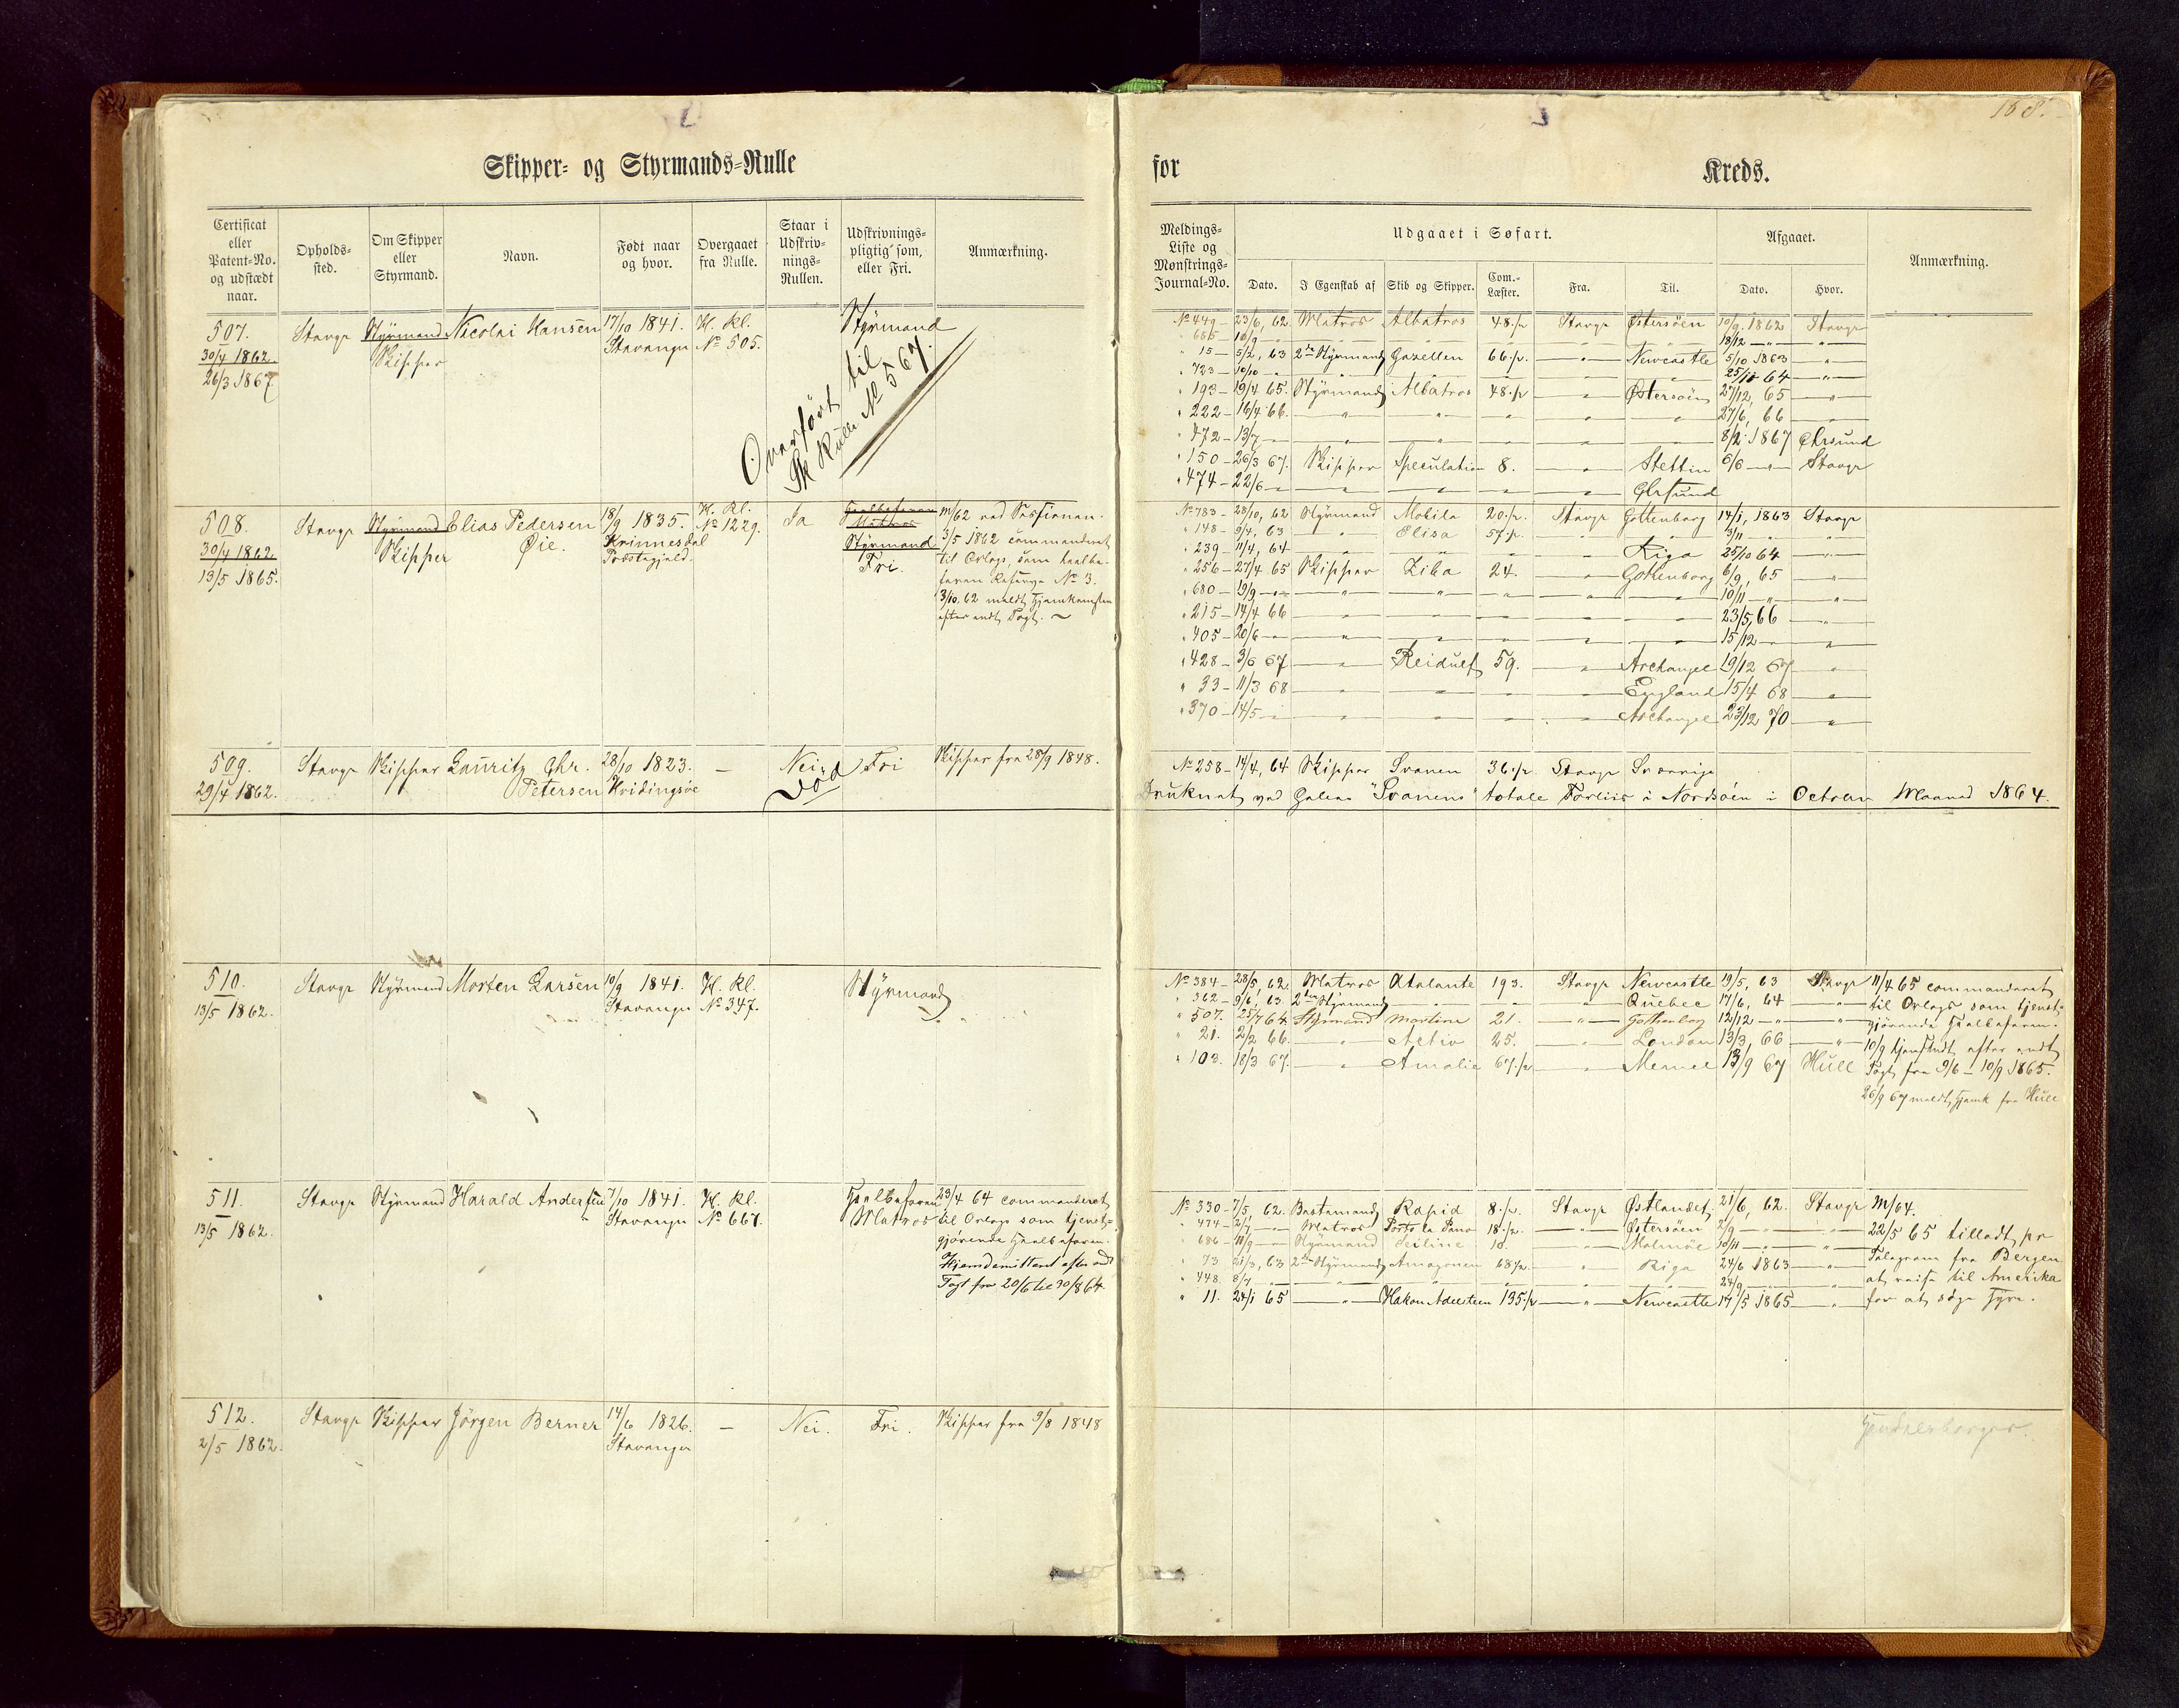 168.
Skipper- og Styrmands-Rulle
for Kreds.
Certificat eller Patent-No. og udstædt naar.
Opholds-sted.
Om Skipper eller Styrmand.
Navn.
Født naar og hvor.
Overgaaet fra Rulle.
Staar i Udskriv-nings-Rullen.
Udskrivnings-pligtig som, eller Fri.
Anmærkning.
Meldings-Liste og Mønstrings-Journal-No.
Udgaaet i Søfart.
Dato. I Egenskab af Skib og Skipper. Com.-Læster. Fra. Til.
Afgaaet.
Dato. Hvor.
Anmærkning.
507. Stavgr Styrmand Nicolai Hansen 17/10 1841. H. Kl. Styrmand
30/4 1862. Skipper Stavanger No 505.
26/3 1867
Overført til
Sk Rulle No 567.
No 449 - 23/6, 62 Matros Albatros 48.½ Stavgr Østersöen 10/9. 1862 Stavgr
" 685 - 10/9 - " 18/12 - " -
" 15 - 5/2, 63 2den Styrmand Gazellen 66.½. " Newcastle 5/10 1863 "
" 723 - 10/10 - " 25/11 64 - " -
" 193 - 19/4 65. Styrmand Albatros 48.½ " Østersöen 27/12, 65 "
" 222 - 16/4 66. " 27/6, 66 "
" 472 - 13/7 - " 8/2 1867 Ehrsund
" 150 - 26/3 67. Skipper Speculation 8. " Stettin 6/6 - " - Stavgr
" 474 - 22/6 - "
508. Stavgr Styrmand Elias Pedersen 18/9 1835. H. Kl. Ja Matros
30/4 1862 Skipper Øie. No 1229. Styrmand
13/5 1865. Præstegjeld. Fri.
3/5 1862 commanderet
til Orlogs, som
No 3.
3/10. 62 meldt Hjemkomsten
efter endt Togt.
No 783 - 28/10, 62 Styrmand Mobila 20.½. Stavgr Gottenborg 14/1, 1863 Stavgr
" 148 - 9/4, 63 " Elisa 57.½. " 3/11 "
" 239 - 11/4, 64 " Riga 25/10 64 "
" 256 - 27/4 65 Skipper Ziba 24. " Gothenborg 6/9, 65 "
" 680 - 19/9 - " 10/11 "
" 215 - 14/4 66 " 23/5, 66 "
" 405 - 20/6 - " 15/12 "
" 428 - 3/6 67 " Reidulf 59. " Archangel 19/12 67 "
" 33 - 11/3 68 " England 15/4 68 "
" 370 - 14/5 - " Archangel 23/12 70 "
509. Stavgr Skipper Lauritz Chr. 28/10 1823. — Nei Fri Skipper fra 28/9 1848.
29/4 1862. Petersen Hvidingsöe Död
No 258 - 14/4, 64 Skipper Svanen 36.½ Stavgr Sverrige
Druknet ved Galeas "Svanens" totale Forliis i Nordsöen i October Maaned 1864.
510. Stavgr Styrmand Morten Larsen 10/9 1841. H. Kl. Styrmand
13/5 1862. Stavanger No 347.
No 384 - 28/5, 62. Matros Atalante 193. Stavgr Newcastle 19/5, 63 Stavgr
" 362 - 9/6, 63. 2den Styrmand " Quebec 17/6, 64 "
" 507. 25/7 64. Styrmand Martine 21. " Gothenborg 12/12 - " -
" 21. 2/2 66. " Activ 25. " London 13/3, 66 "
" 103. 18/3 67. " Amalie 67.½ " Memel 13/9 67 Hull
11/4 65 commanderet
til Orlogs som tjenst-
gjörende Halvbefaren.
10/9 hjemsendt efter endt
Togt fra 9/6 - 10/9 1865.
26/9 67 meldt hjemk fra Hull
511. Stavgr Styrmand Harald Andersen 7/10 1841. H. Kl. Halvbefaren
13/5 1862. Stavanger No 667. Matros
23/4 64 commanderet
til Orlogs som tjenst-
gjörende Halvbefaren.
Hjemdemitteret efter endt
Togt fra 20/6 til 30/8 64.
No 330 - 7/5, 62. Bestemand Rapid 8.½. Stavgr Østlandet 21/6, 62. Stavgr
" 474 - 2/7 - Matros 18.½. " Østersöen 2/9 "
" 686 - 11/9 - Styrmand 10. " Malmöe 10/11 - " -
" 73 21/3, 63 2den Styrmand Amazonen 68½ " Riga 24/6 1863 "
" 448. 8/7 " 24/9 "
" 11. 24/1 65 " Hakon Adelsteen 195.½ " Newcastle 17/5 1865 "
M/64.
22/5 65 tilladt pr
Telegram fra Bergen
at reise til Amerika
for at söge Hyre.
512. Stavgr Skipper Jörgen Berner 14/6 1826. — Nei. Fri. Skipper fra 9/8 1848
2/5 1862. Stavanger